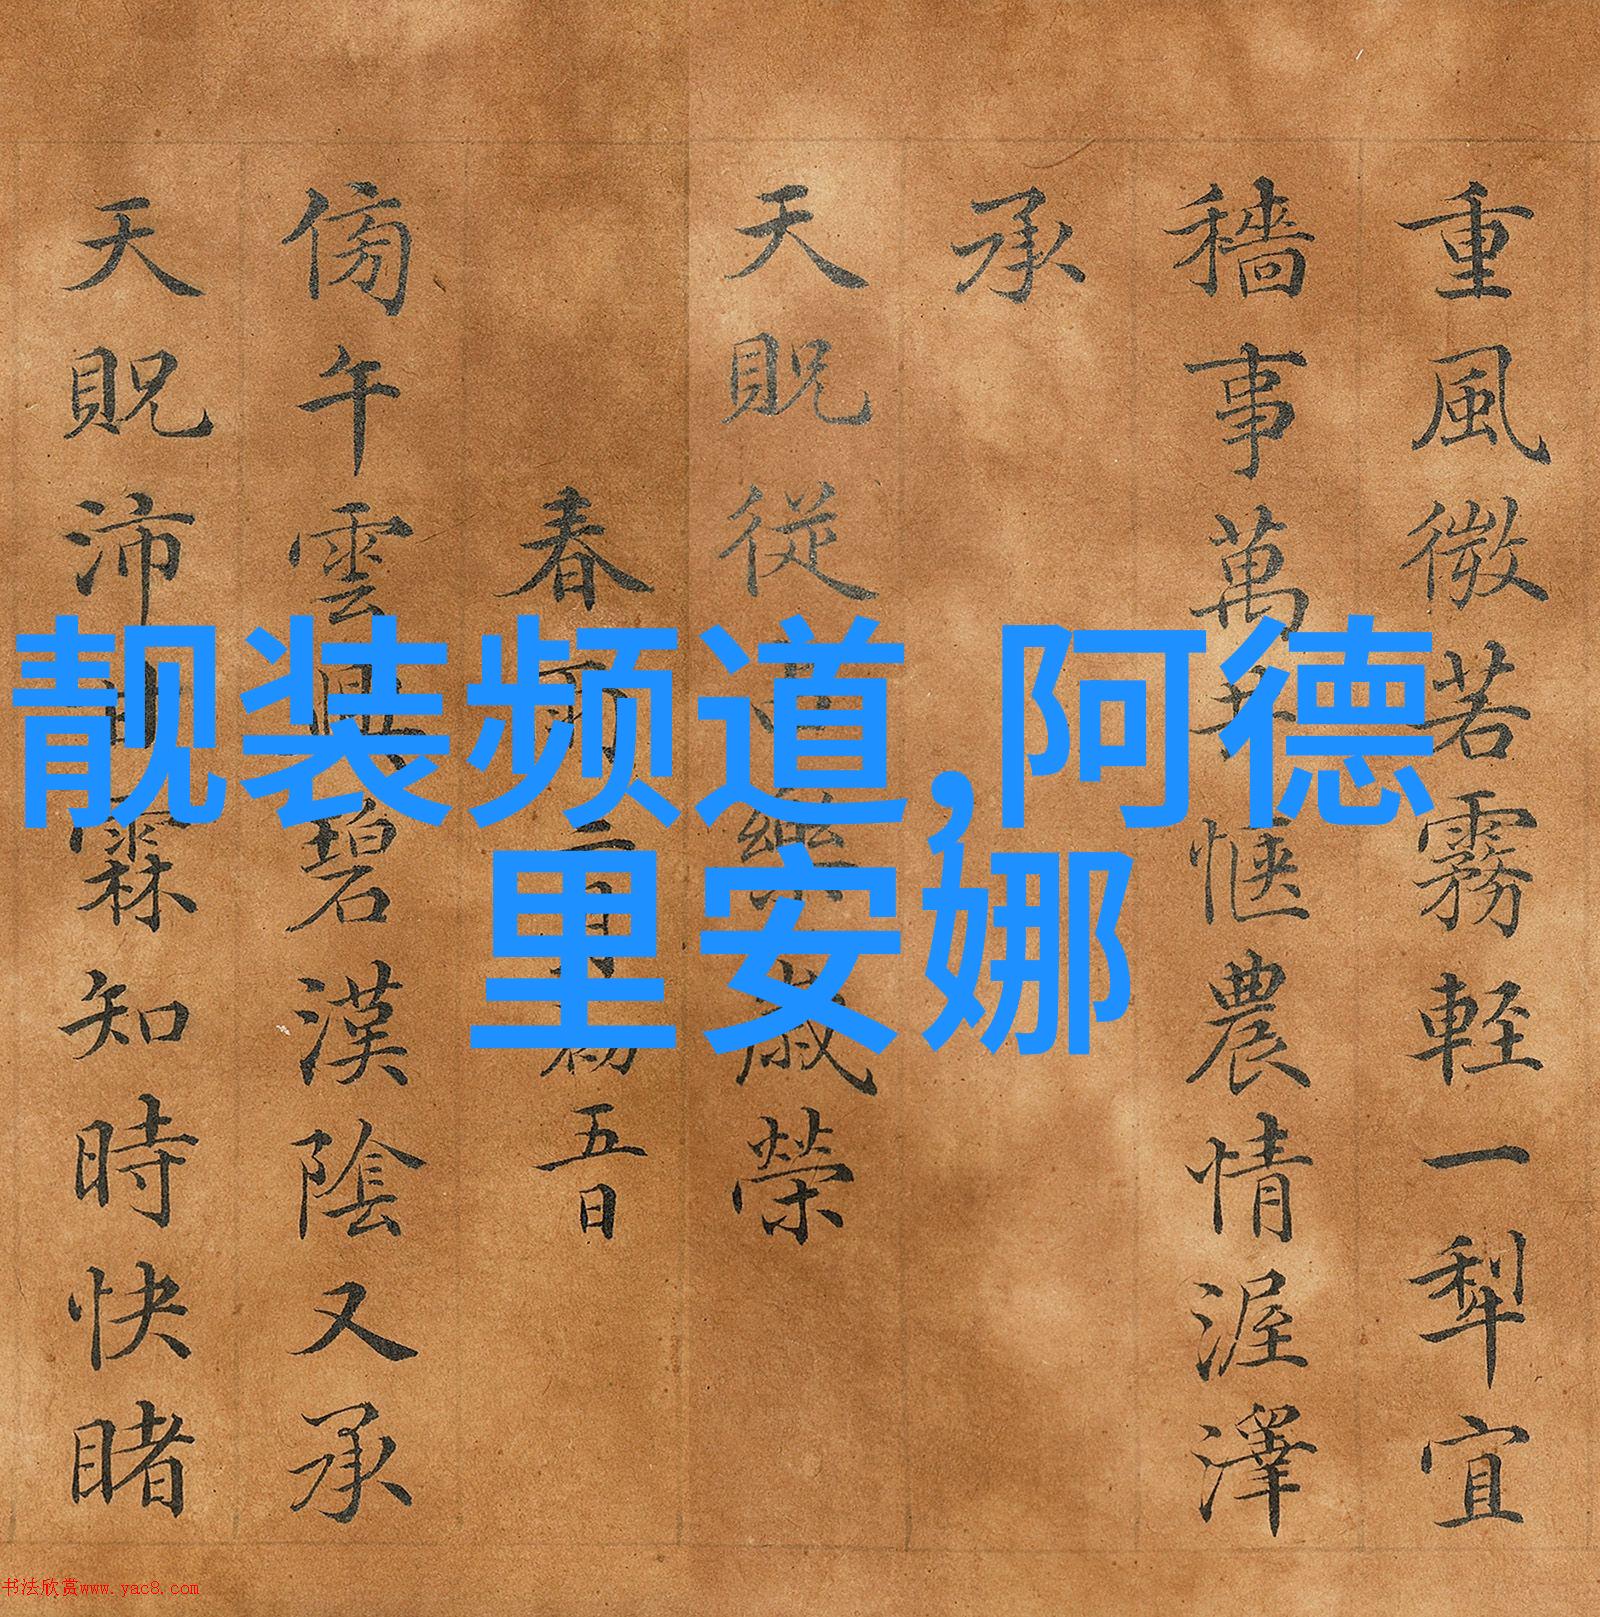 靓装频道,阿德
里安娜
重風微若霧輕一犁宜
穡事萬井愜農情渥澤
承
天貺從歲榮
春雨二月初五日
傍午雲興碧漢陰又承
天貺沛甘霖知時快睹
书法欣赏www.yac8.com